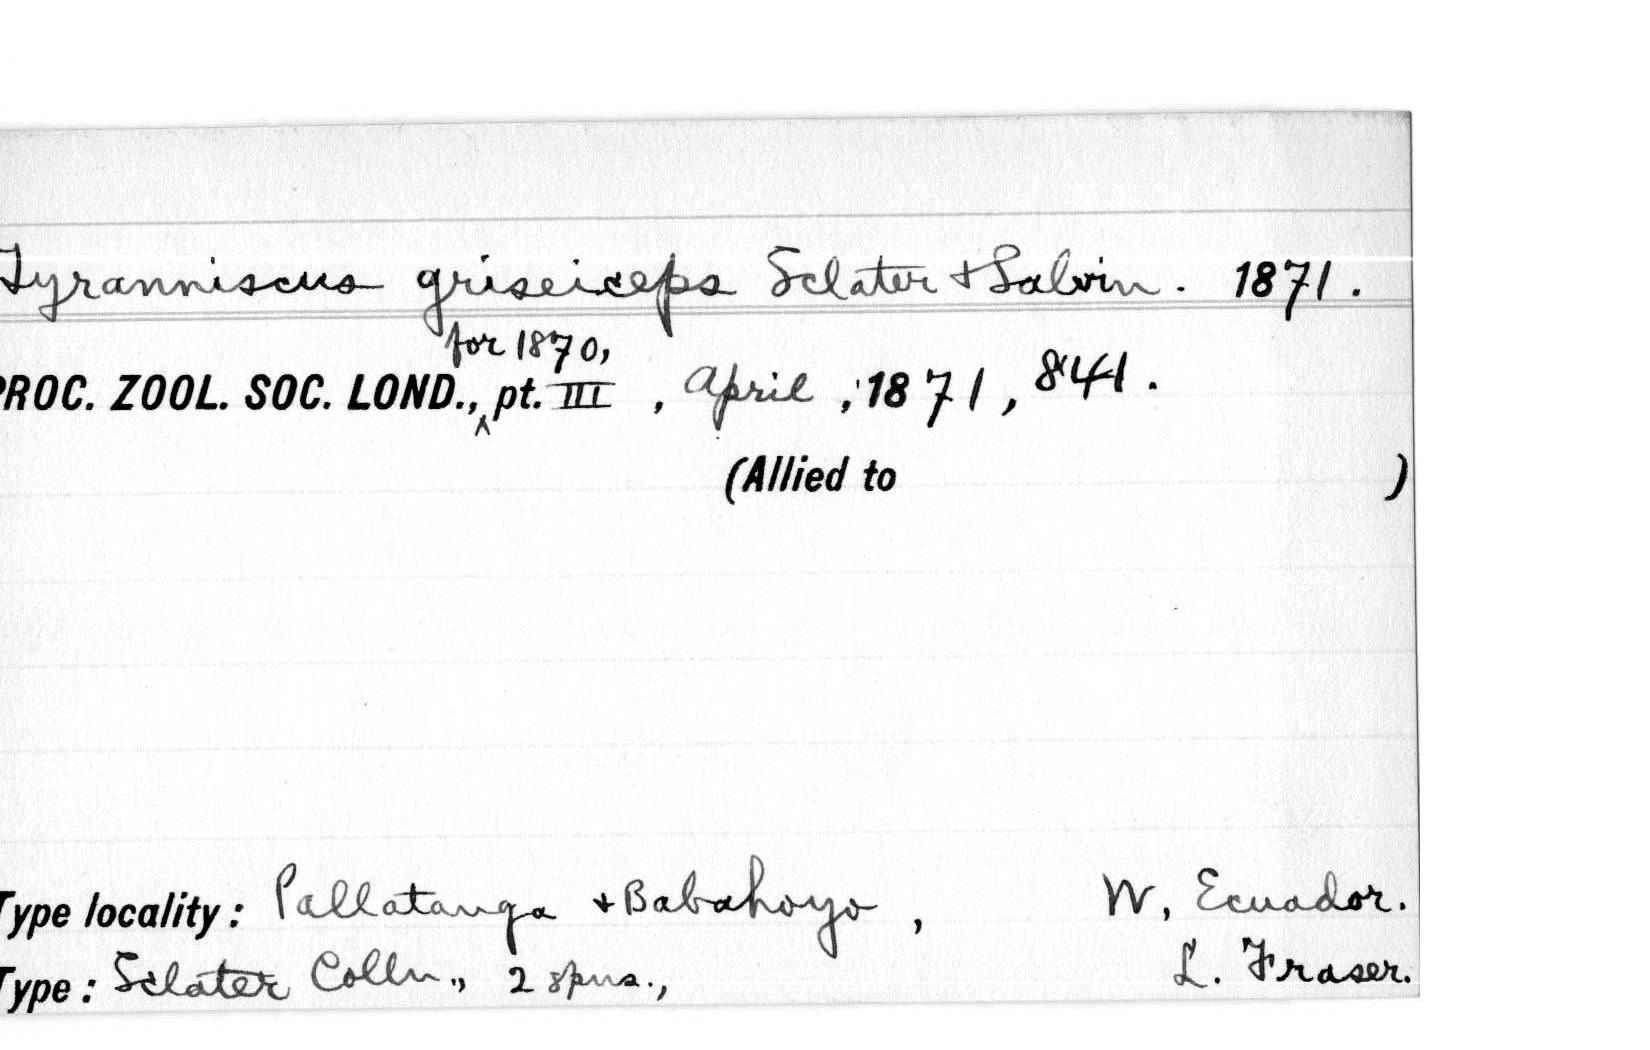 Tyranniscus griseiceps Sclater & Salvin. 1871.
for 1870,
PROC. ZOOL. SOC. LOND., ^ pt. III, April, 1871, 841.
(Allied to )
Type locality: Pallatanga & Babahoyo, W. Ecuador.
Type: Sclater Colln., 2 spns., L. Fraser.